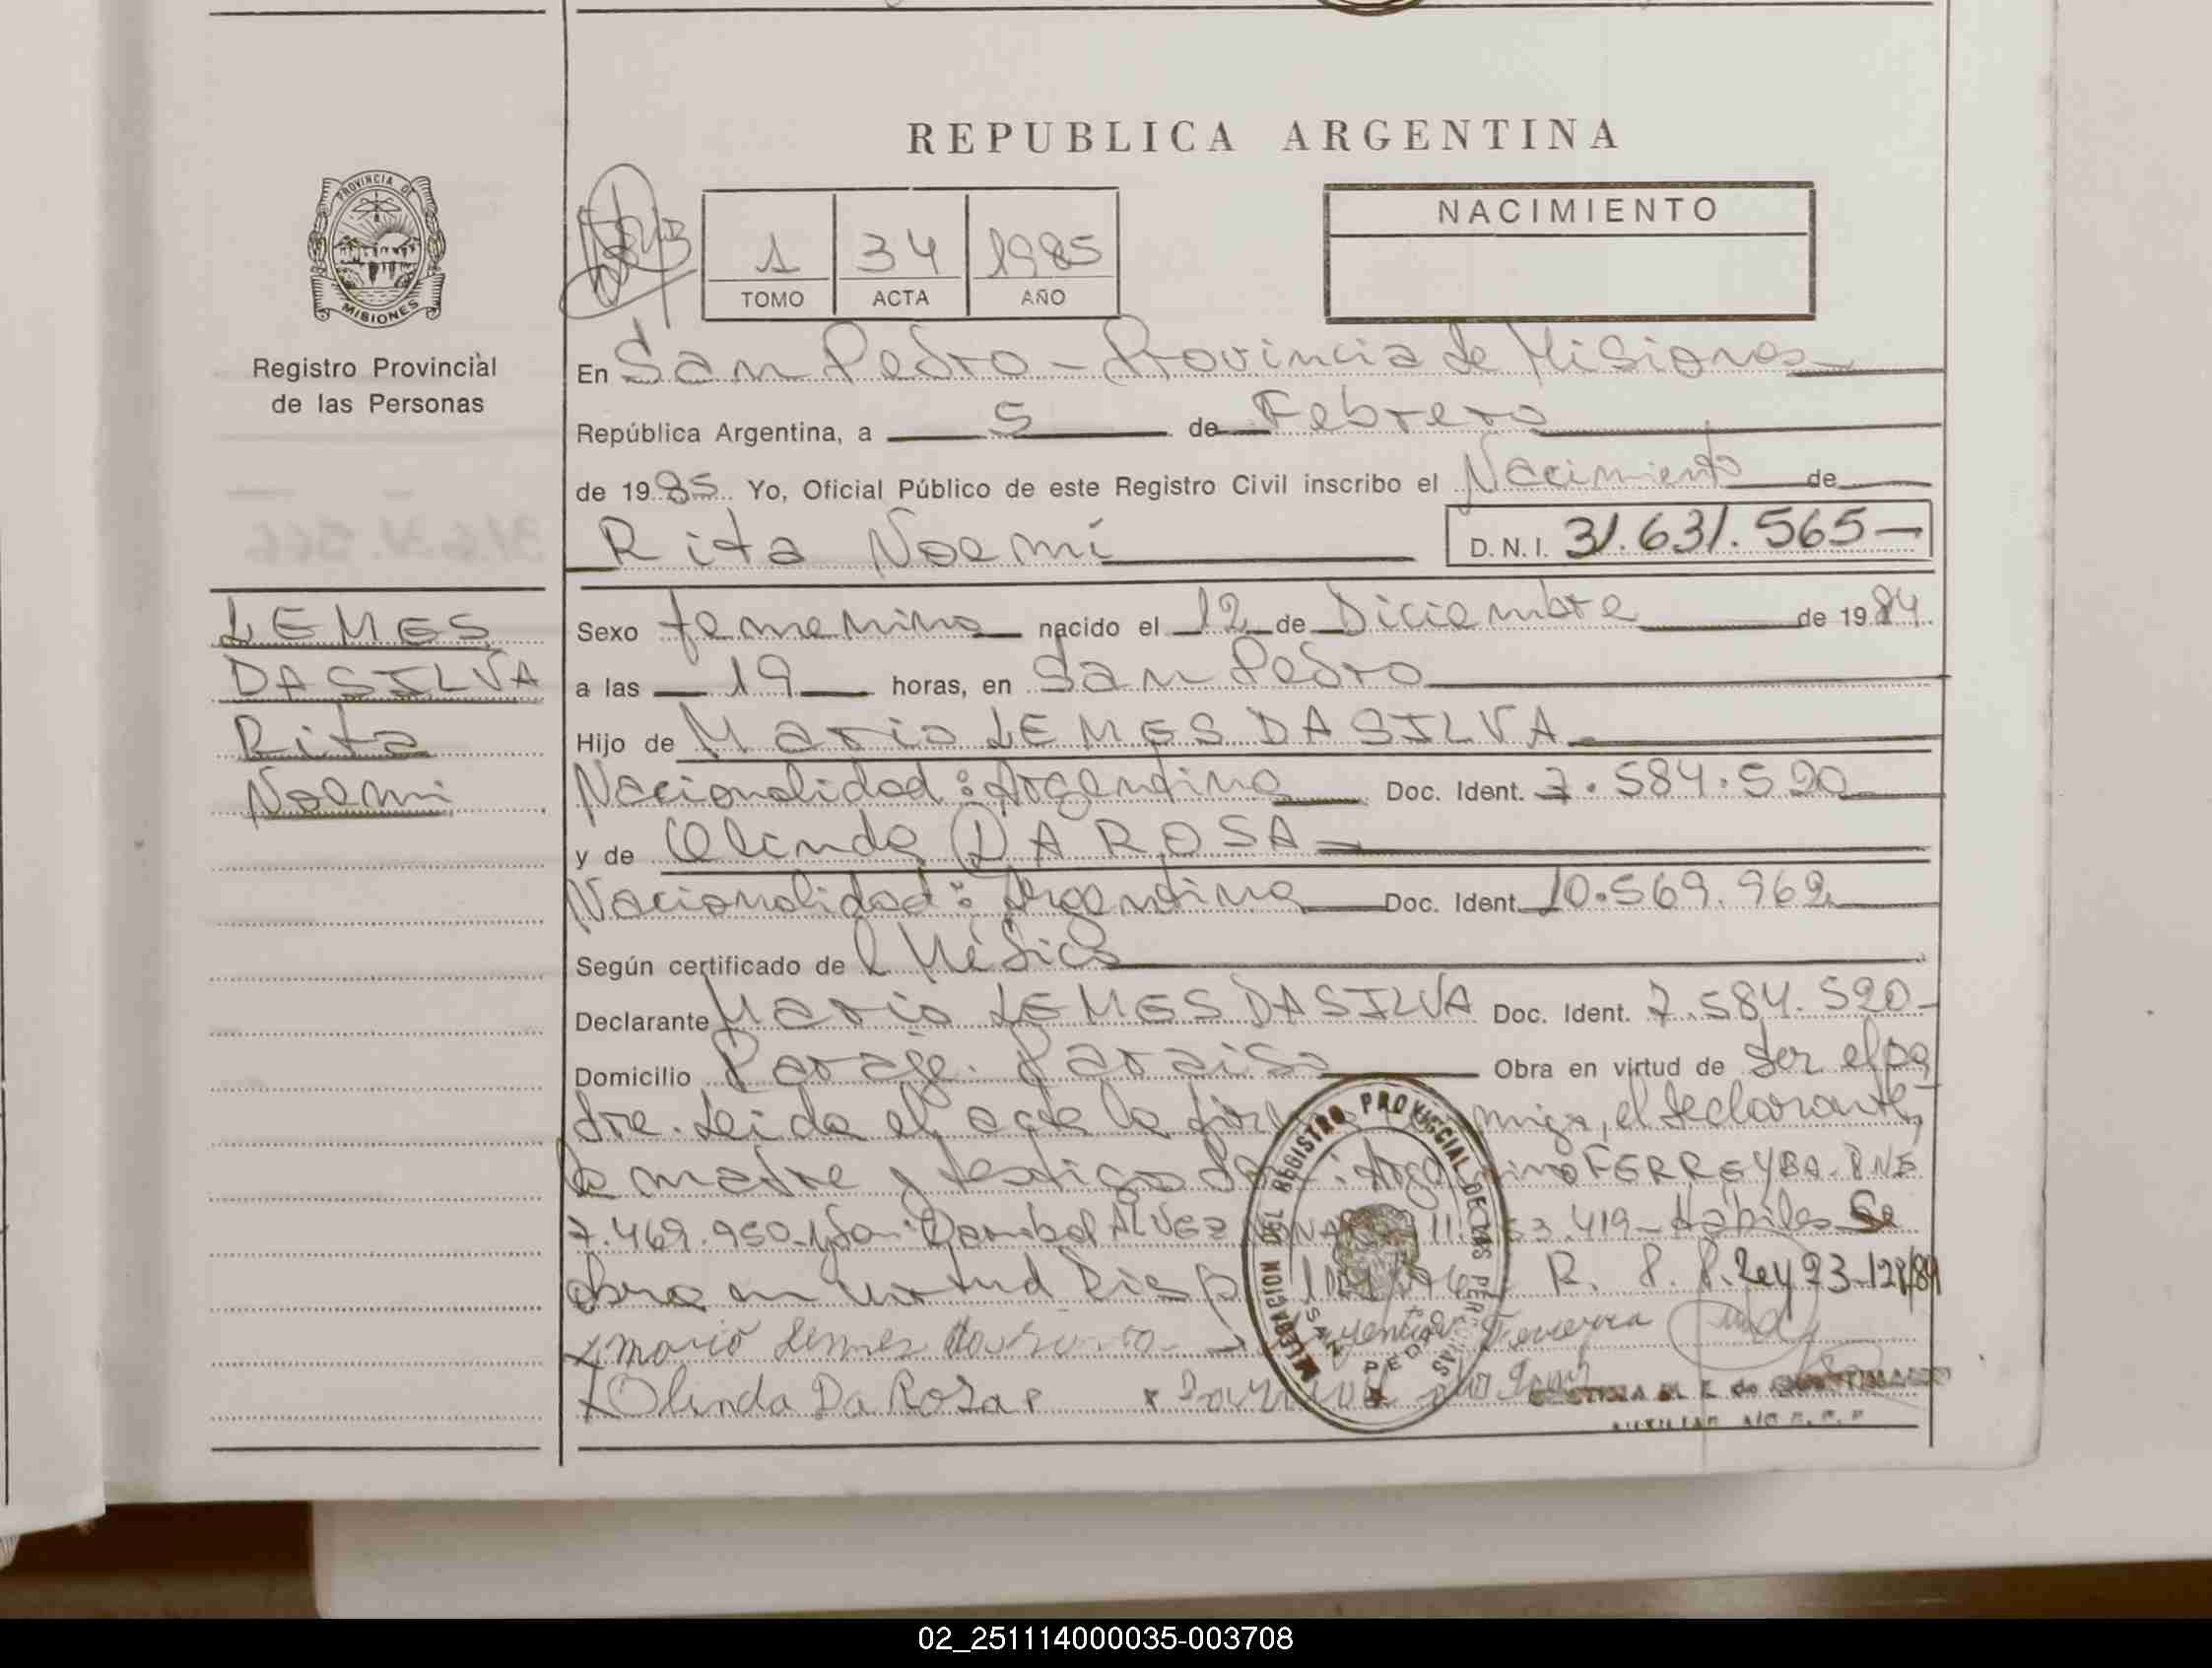 REPUBLICA ARGENTINA
PROVINCIA DE
MISIONES
Registro Provincial
de las Personas
1 34 1985
TOMO ACTA AÑO
NACIMIENTO
En San Pedro - Provincia de Misiones
República Argentina, a 5 de Febrero
de 1985. Yo, Oficial Público de este Registro Civil inscribo el Nacimiento de
Rita Noemí D.N.I. 31.631.565-
LEMES
DA SILVA
Rita
Noemi
Sexo femenino nacido el 12 de Diciembre de 1984
a las 19 horas, en San Pedro
Hijo de Mario LEMES DA SILVA
Nacionalidad: Argentina Doc. Ident. 7.584.520
y de Olinda DA ROSA
Nacionalidad: Argentina Doc. Ident. 10.569.962
Según certificado del Médico
Declarante Mario LEMES DA SILVA Doc. Ident. 7.584.520-
Domicilio Paraje Paraiso Obra en virtud de Ser el pa
dre. Leida el acta la migo, el declarante,
la madre y testigos FERREYRA. D.N.I.
7.469.950 ALVEZ 419 - Habiles Se
obra en virtud R. P. P. Ley 23.128/84
x mario Lemes da
x Olinda Da Rosa
DELEGACION DEL REGISTRO PROVINCIAL DE LAS PERSONAS
SAN PEDRO
AUXILIAR A/C R.P.P
02_251114000035-003708